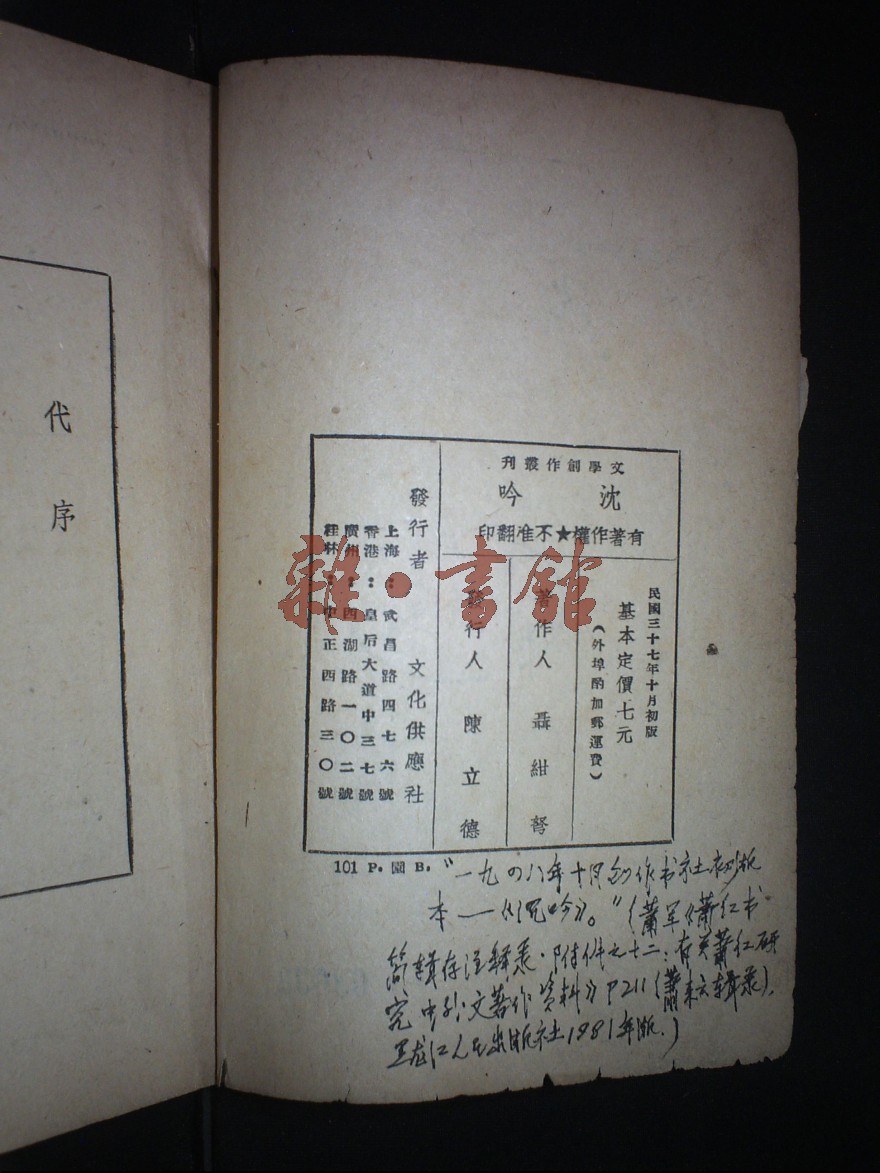 代序
文學創作叢刊
沈吟
有著作權★不准翻印
民國三十七年十月初版
基本定價七元
（外埠酌加郵運費）
著作人 聶紺弩
發行人 陳立德
發行者 文化供應社
上海：武昌路四七六號
香港：皇后大道中三七號
廣州：西湖路一〇二號
桂林：中正西路三〇號
101 P. 圖 B.
"一九四八年十月创作书社初版
本——《沉吟》。"（蕭军《蕭红书
简辑存注释录·附件之十二：有关蕭红研
究中外文著作资料》P211（蕭耘辑录），
黑龙江人民出版社1981年版.）
雜·書館